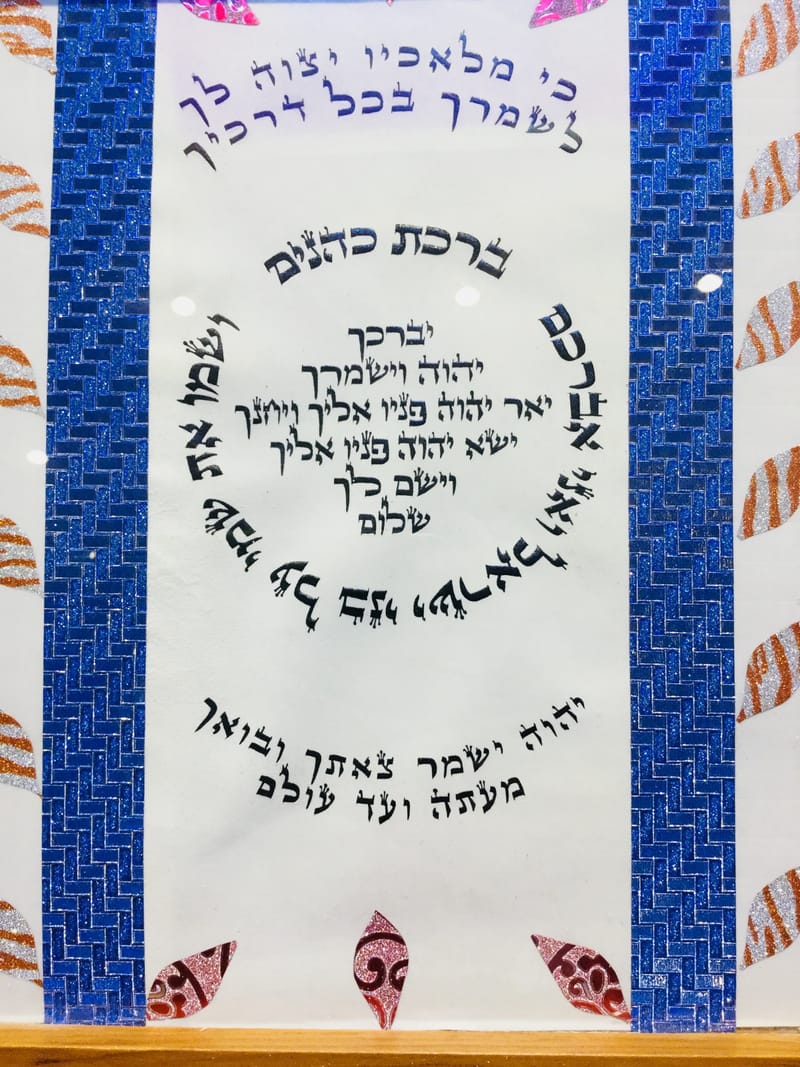 כי מלאכיו יצוה לך
לשמרך בכל דרכיך
ברכת כהנים
יברכך
יהוה וישמרך
יאר יהוה פניו אליך ויחנך
ישא יהוה פניו אליך
וישם לך
שלום
ושמו את שמי על בני ישראל ואני אברכם
יהוה ישמר צאתך ובואך
מעתה ועד עולם